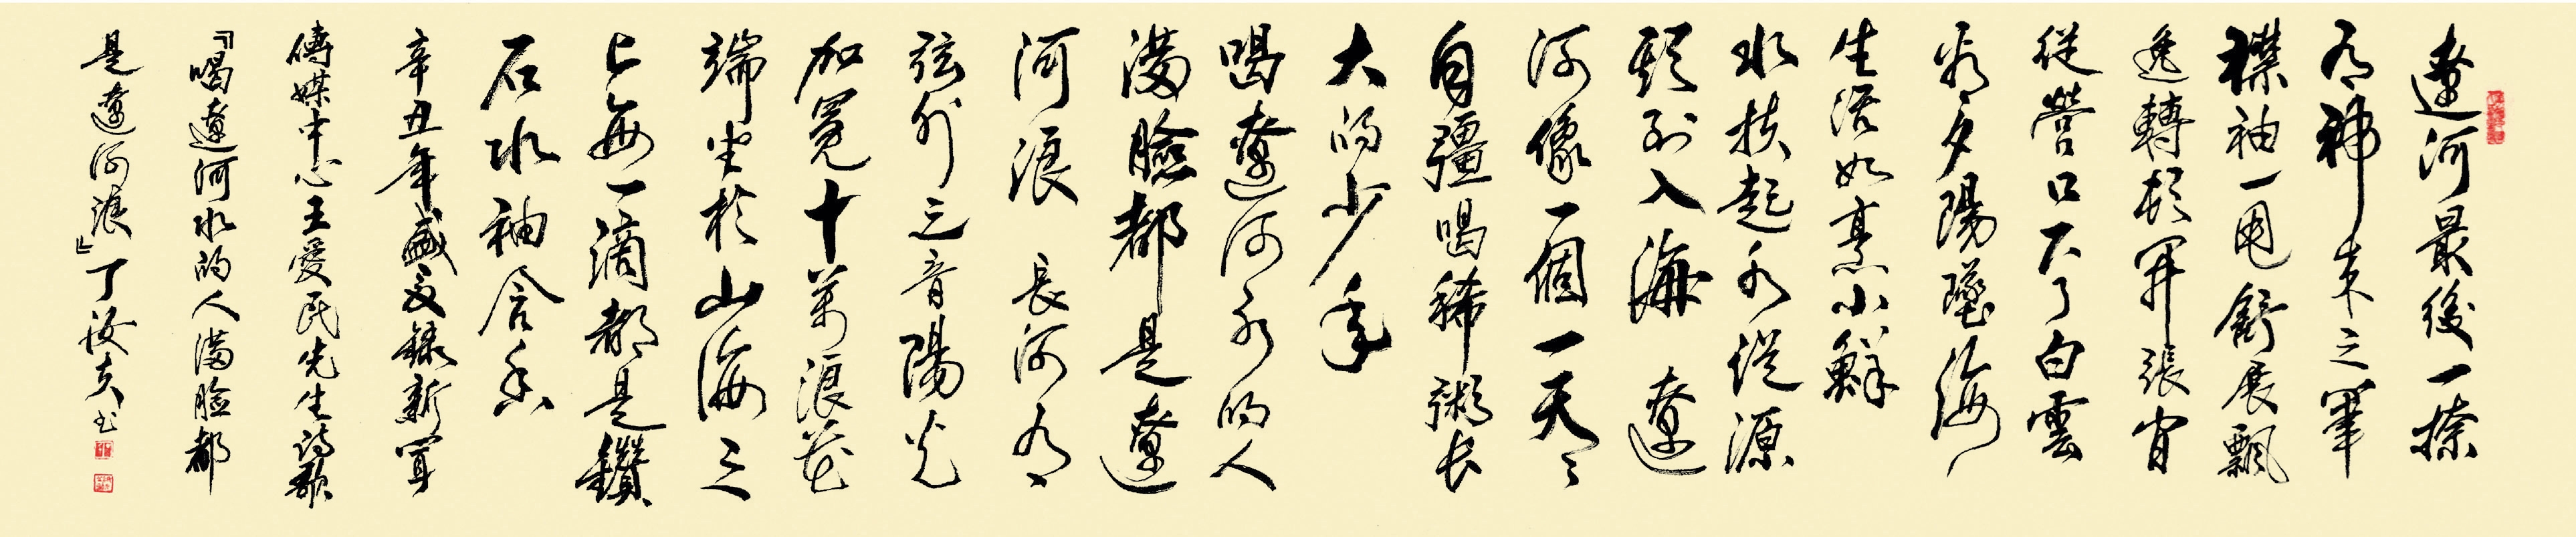 遼河最後一捺
乃神來之筆
襟袖一甩舒展飄
逸轉頓開張宵
從營口下了白雲
夕陽墜海
生活如烹小鮮
水扶起水從源
頭到入海遼
河像一個一天天
自彊喝稀粥长
大的少年
喝遼河水的人
满臉都是遼
河浪長河乃
弦外之音陽光
加冕十萬浪花
端坐於山海之
上每一滴都是鑽
石水袖含香
辛丑年盛夏録新聞
傳媒中心王愛民先生诗歌
『喝遼河水的人满脸都
是遼河浪』丁汝夫书